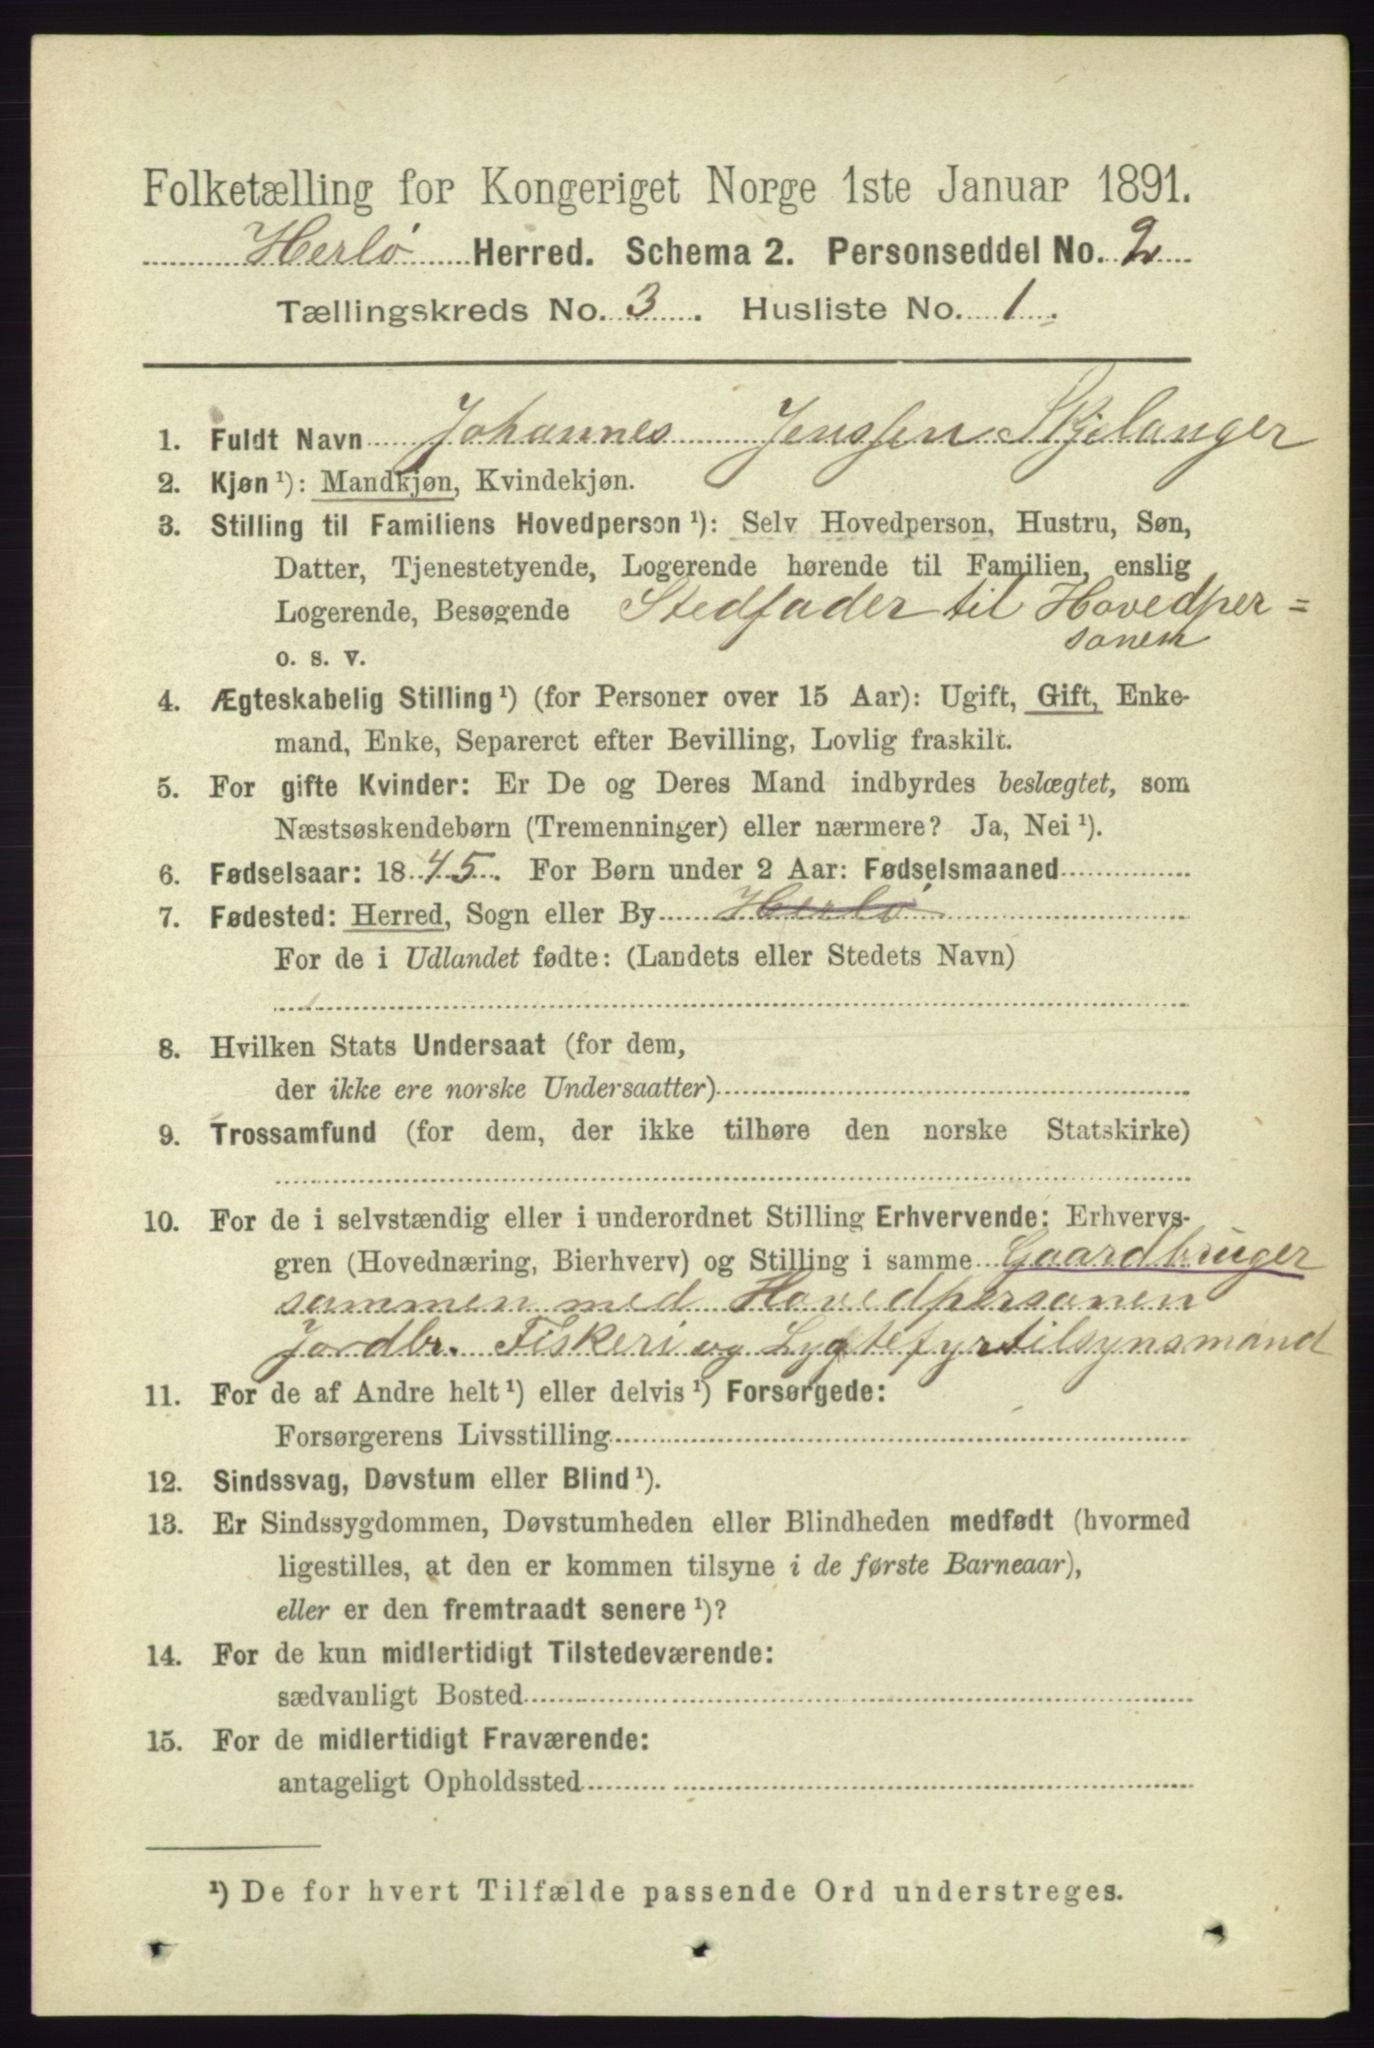 Folketælling for Kongeriget Norge 1ste Januar 1891.
Herlø Herred. Schema 2. Personseddel No. 2
Tællingskreds No. 3. Husliste No. 1.
1. Fuldt Navn Johannes Jenssen Skjelanger
2. Kjøn ¹): Mandkjøn, Kvindekjøn.
3. Stilling til Familiens Hovedperson ¹): Selv Hovedperson, Hustru, Søn,
Datter, Tjenestetyende, Logerende hørende til Familien, enslig
Logerende, Besøgende Stedfader til Hovedper=
sonen
o. s. v.
4. Ægteskabelig Stilling ¹) (for Personer over 15 Aar): Ugift, Gift, Enke-
mand, Enke, Separeret efter Bevilling, Lovlig fraskilt.
5. For gifte Kvinder: Er De og Deres Mand indbyrdes beslægtet, som
Næstsøskendebørn (Tremenninger) eller nærmere? Ja, Nei ¹).
6. Fødselsaar: 1845. For Børn under 2 Aar: Fødselsmaaned
7. Fødested: Herred, Sogn eller By Herlø
For de i Udlandet fødte: (Landets eller Stedets Navn)
8. Hvilken Stats Undersaat (for dem,
der ikke ere norske Undersaatter)
9. Trossamfund (for dem, der ikke tilhøre den norske Statskirke)
10. For de i selvstændig eller i underordnet Stilling Erhvervende: Erhvervs-
gren (Hovednæring, Bierhverv) og Stilling i samme Gaardbruger
sammen med Hovedpersonen
Jordbr. Fiskeri og Lygtefyrtilsynsmand
11. For de af Andre helt ¹) eller delvis ¹) Forsørgede:
Forsørgerens Livsstilling
12. Sindssvag, Døvstum eller Blind ¹).
13. Er Sindssygdommen, Døvstumheden eller Blindheden medfødt (hvormed
ligestilles, at den er kommen tilsyne i de første Barneaar),
eller er den fremtraadt senere ¹)?
14. For de kun midlertidigt Tilstedeværende:
sædvanligt Bosted
15. For de midlertidigt Fraværende:
antageligt Opholdssted
¹) De for hvert Tilfælde passende Ord understreges.